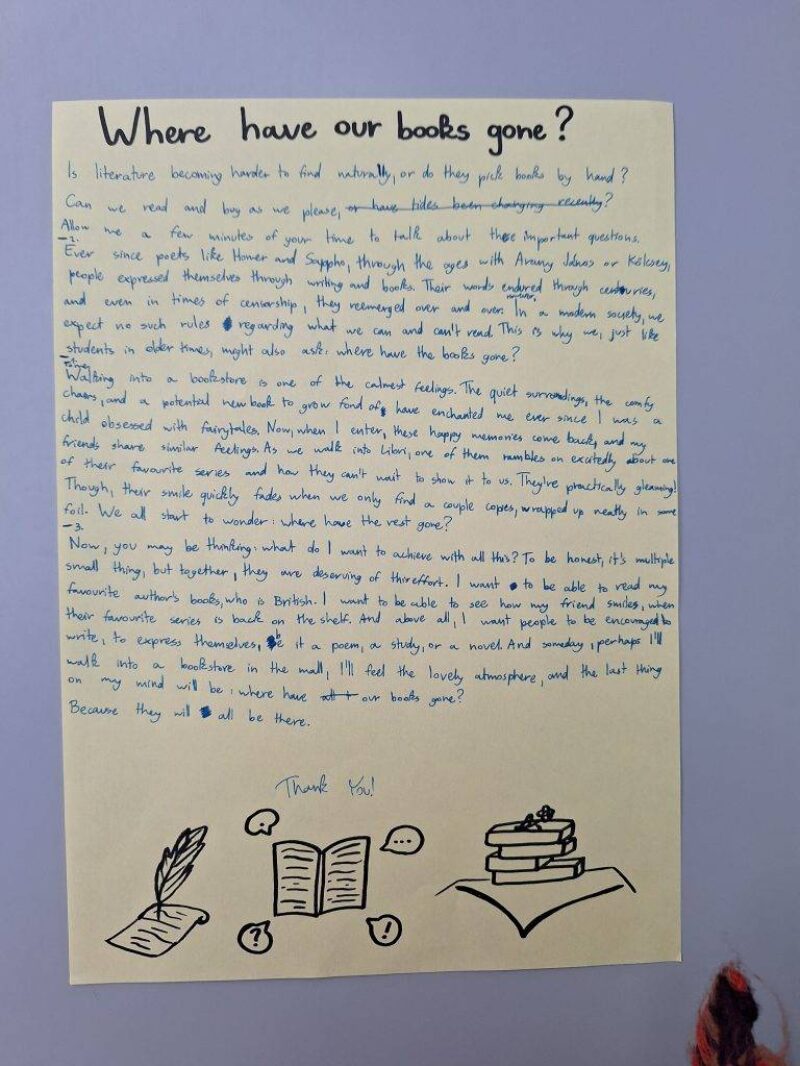 Where have our books gone?
Is literature becoming harder to find naturally, or do they pick books by hand?
Can we read and buy as we please, or have tides been changing recently?
Allow me a few minutes of your time to talk about these important questions.
-2.
Ever since poets like Homer and Sappho, through the ages with Arany János or Kölcsey,
people expressed themselves through writing and books. Their words endured through centuries,
and even in times of censorship, they reemerged over and over. In a modern society, we
expect no such rules regarding what we can and can't read. This is why we, just like
students in older times, might also ask: where have the books gone?
Walking into a bookstore is one of the calmest feelings. The quiet surroundings, the comfy
chairs, and a potential new book to grow fond of, have enchanted me ever since I was a
child obsessed with fairytales. Now, when I enter, these happy memories come back, and my
friends share similar feelings. As we walk into Libri, one of them rambles on excitedly about one
of their favourite series and how they can't wait to show it to us. They're practically gleaming!
Though, their smile quickly fades when we only find a couple copies, wrapped up neatly in some
foil. We all start to wonder: where have the rest gone?
-3.
Now, you may be thinking: what do I want to achieve with all this? To be honest, it's multiple
small thing, but together, they are deserving of this effort. I want to be able to read my
favourite author's books, who is British. I want to be able to see how my friend smiles, when
their favourite series is back on the shelf. And above all, I want people to be encouraged to
write, to express themselves, be it a poem, a study, or a novel. And someday, perhaps I'll
walk into a bookstore in the mall, I'll feel the lovely atmosphere, and the last thing
on my mind will be: where have our books gone?
Because they will all be there.
Thank You!
...
?
!